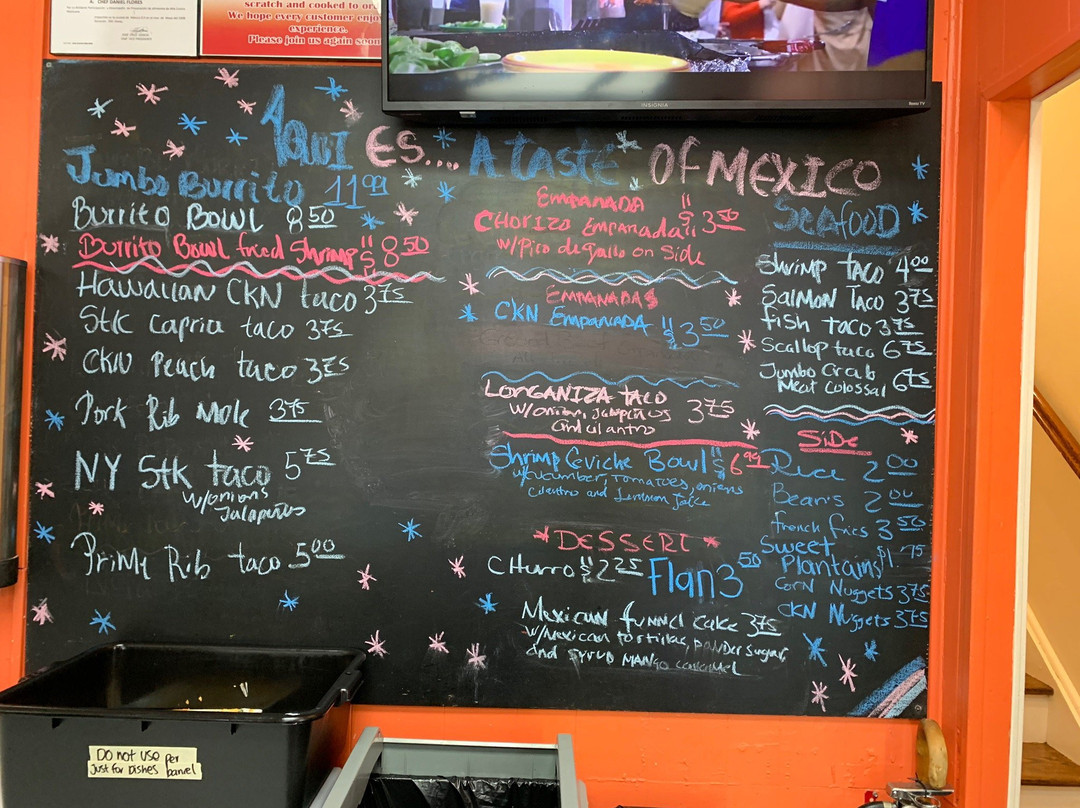 CHEF DANIEL FLORES
scratch and cooked to
We hope every customer enjo
experience.
Please join us again soon
INSIGNIA
Roku TV
AQUI ES.... A taste OF MEXICO
Jumbo Burrito 11 99
Burrito Bowl 8 50
Burrito Bowl fried Shrimp $ 8 50
Hawaiian CKN taco 3 75
Stk Capria taco 3 75
CKN Peach taco 3 75
Pork Rib Mole 3 75
NY Stk taco 5 75
w/onions
Jalapeños
Prime Rib taco 5 00
EMPANADA
CHORIZO Empanada $ 3 50
w/Pico de gallo on Side
EMPANADAS
CKN EMPANADA $ 3 50
LONGANIZA taco 3 75
w/onion, Jalapeños
and cilantro
Shrimp Ceviche Bowl $ 6 99
w/cucumber, tomatoes, onions
cilantro and Lemmon Juice
DESSERT
CHurro $ 2 25 Flan 3 50
Mexican funnel cake 3 75
w/Mexican tortillas, powder sugar,
and syrup MANgo caramel
SEAfOOD
Shrimp taco 4 00
Salmon Taco 3 75
fish taco 3 75
Scallop taco 6 75
Jumbo Crab
Meat Colossal 6 75
SiDe
Rice 2 00
Bean's 2 00
french fries 3 50
Sweet
Plantains $1.75
Corn Nuggets 3 75
CKN Nuggets 3 75
Do not use
just for dishes